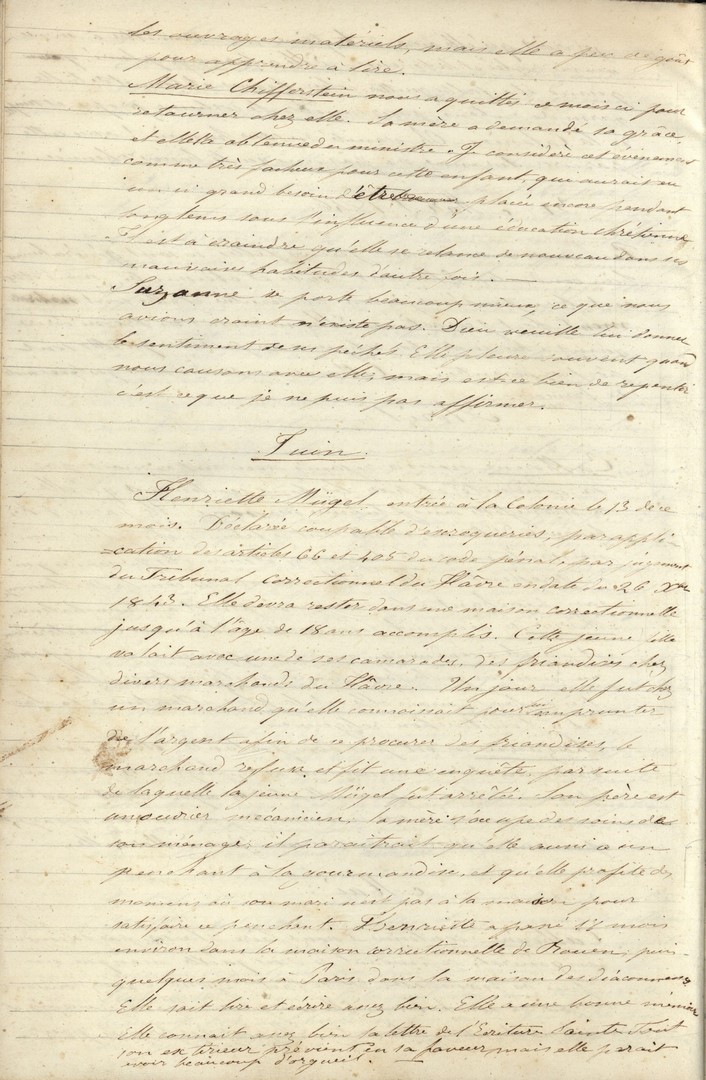 les ouvrages matériels, mais elle a peu de goût
pour apprendre à lire.
Marie Chifferstein nous a quittés ce mois ci pour
retourner chez elle. Sa mère a demandé sa grâce
et elle l'a obtenue du ministre. Je considère cet événement
comme très facheux pour cette enfant qui aurait eu
un si grand besoin d'être placée encore pendant
longtems sous l'influence d'une éducation chrétienne,
Il est à craindre qu'elle se relance de nouveau dans ses
mauvaises habitudes d'autre fois. —
Suzanne se porte beaucoup mieux, ce que nous
avions craint n'existe pas. Dieu veuille lui donner
le sentiment de ses péchés. Elle pleure souvent quand
nous causons avec elle, mais est-ce bien de repentir
c'est ce que je ne puis pas affirmer.
Juin.
Henriette Mügel, entrée à la Colonie le 13 de ce
mois. Déclarée coupable d'escroqueries, par appli-
-cation des articles 66 et 405 du code pénal, par jugement
du Tribunal correctionnel du Hâvre en date du 26 Xbre
1843. Elle devra rester dans une maison correctionnelle
jusqu'à l'âge de 18 ans accomplis. Cette jeune fille
volait avec une de ses camarades, des friandises chez
divers marchands du Hâvre. Un jour elle fut chez
un marchand qu'elle connaissait pour emprunter
de l'argent afin de se procurer des friandises, le
marchand refusa et fit une enquête, par suite
de laquelle la jeune Mügel fut arrêtée. Son père est
un ouvrier mecanicien, la mère s'occupe des soins de
son ménage; il paraîtrait qu'elle aussi a un
penchant à la gourmandise, et qu'elle profite des
momens où son mari n'est pas à la maison pour
satisfaire ce penchant. Henriette a passé mois
environ dans la maison correctionnelle de Rouen, puis
quelques mois à Paris dans la maison des diaconesses
Elle sait lire et écrire assez bien. Elle a une bonne mémoire
Elle connait assez bien la lettre de l'Ecriture Sainte. Tout
son extérieur prévient en sa faveur, mais elle parait
avoir beaucoup d'orgueil.